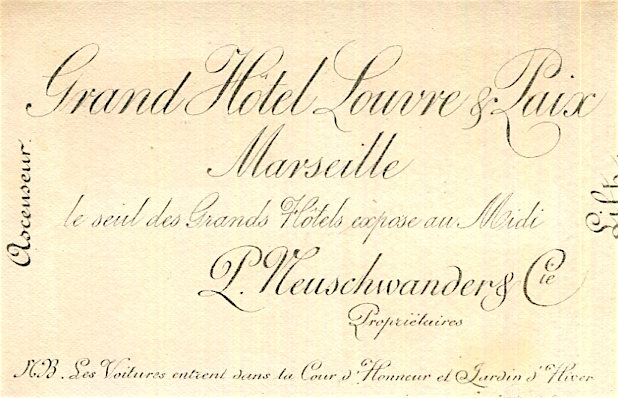 Grand Hôtel Louvre & Paix
Marseille
le seul des Grands Hôtels expose au Midi
P. Neuschwander & Cie
Propriétaires
NB. Les Voitures entrent dans la Cour d'Honneur et Jardin d'Hiver
Ascenseur.
Lift